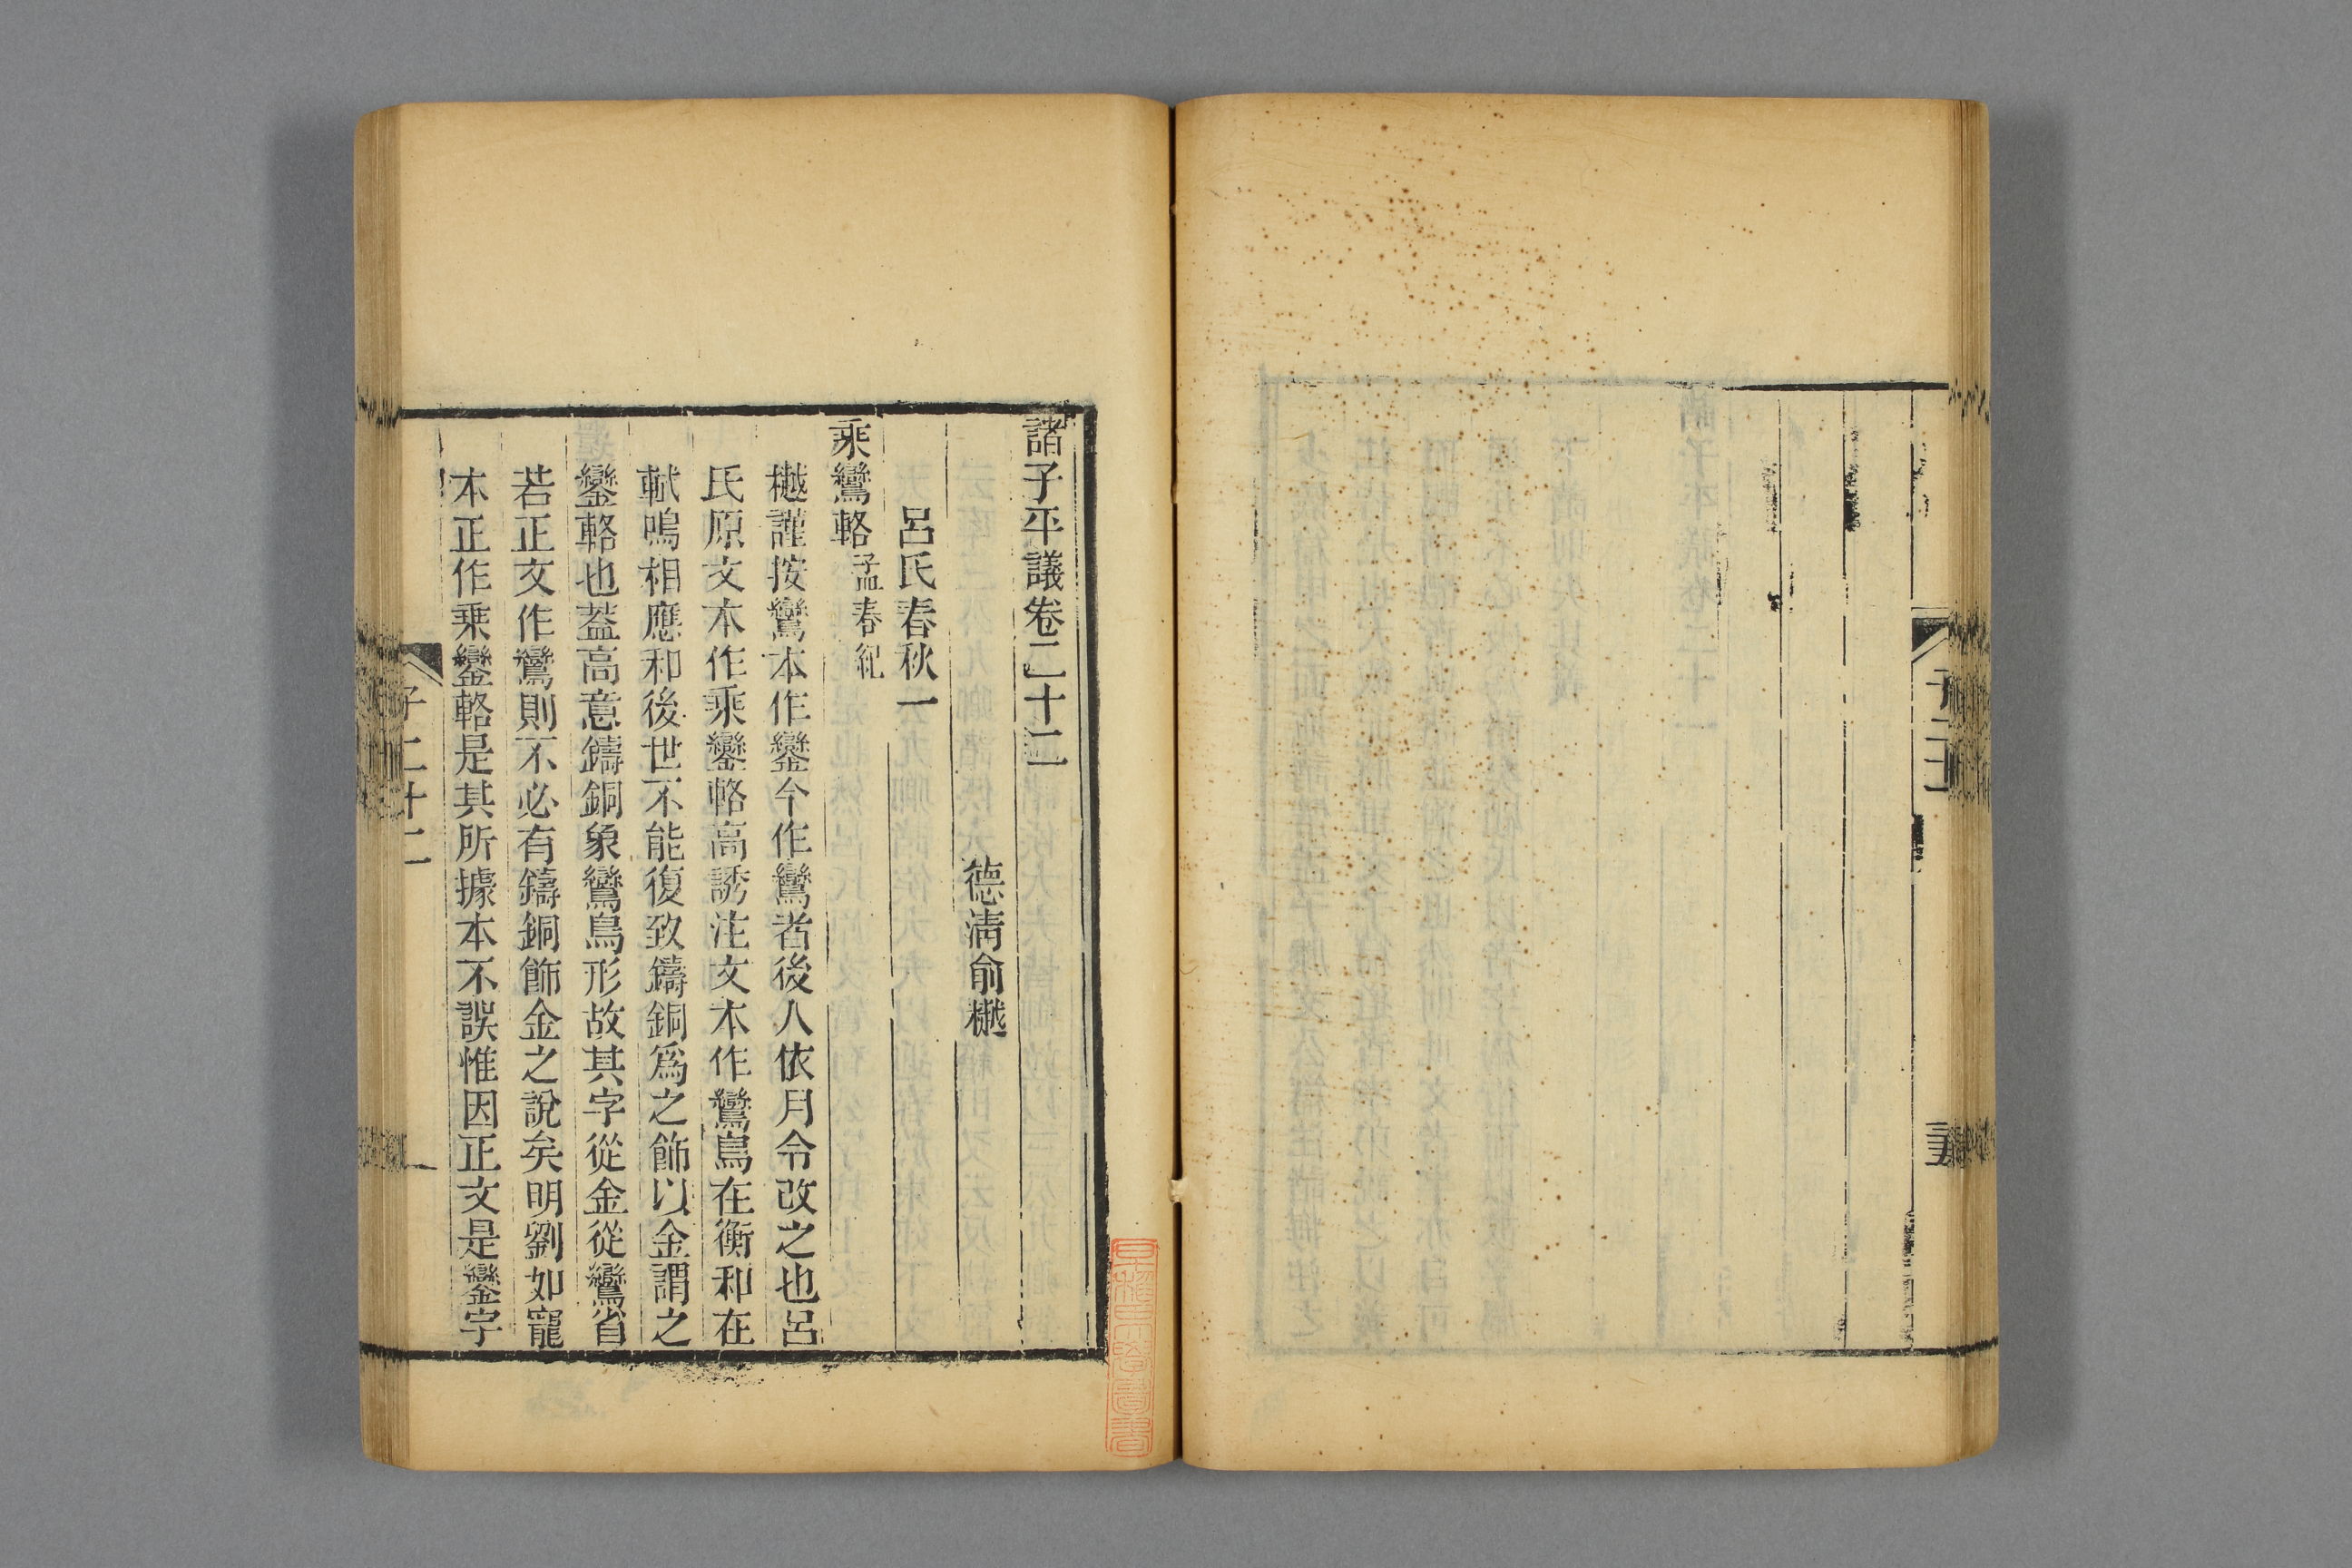 諸子平議卷二十二
德淸俞樾
呂氏春秋一
乘鸞輅孟春紀
樾謹按鸞本作鑾今作鸞者後人依月令改之也呂
氏原文本作乘鑾輅高誘注文本作鸞鳥在衡和在
軾鳴相應和後世不能復致鑄銅爲之飾以金謂之
鑾輅也蓋高意鑄銅象鸞鳥形故其字從金從鸞省
若正文作鸞則不必有鑄銅飾金之說矣明劉如寵
本正作乘鑾輅是其所據本不誤惟因正文是鑾字
子二十二
一